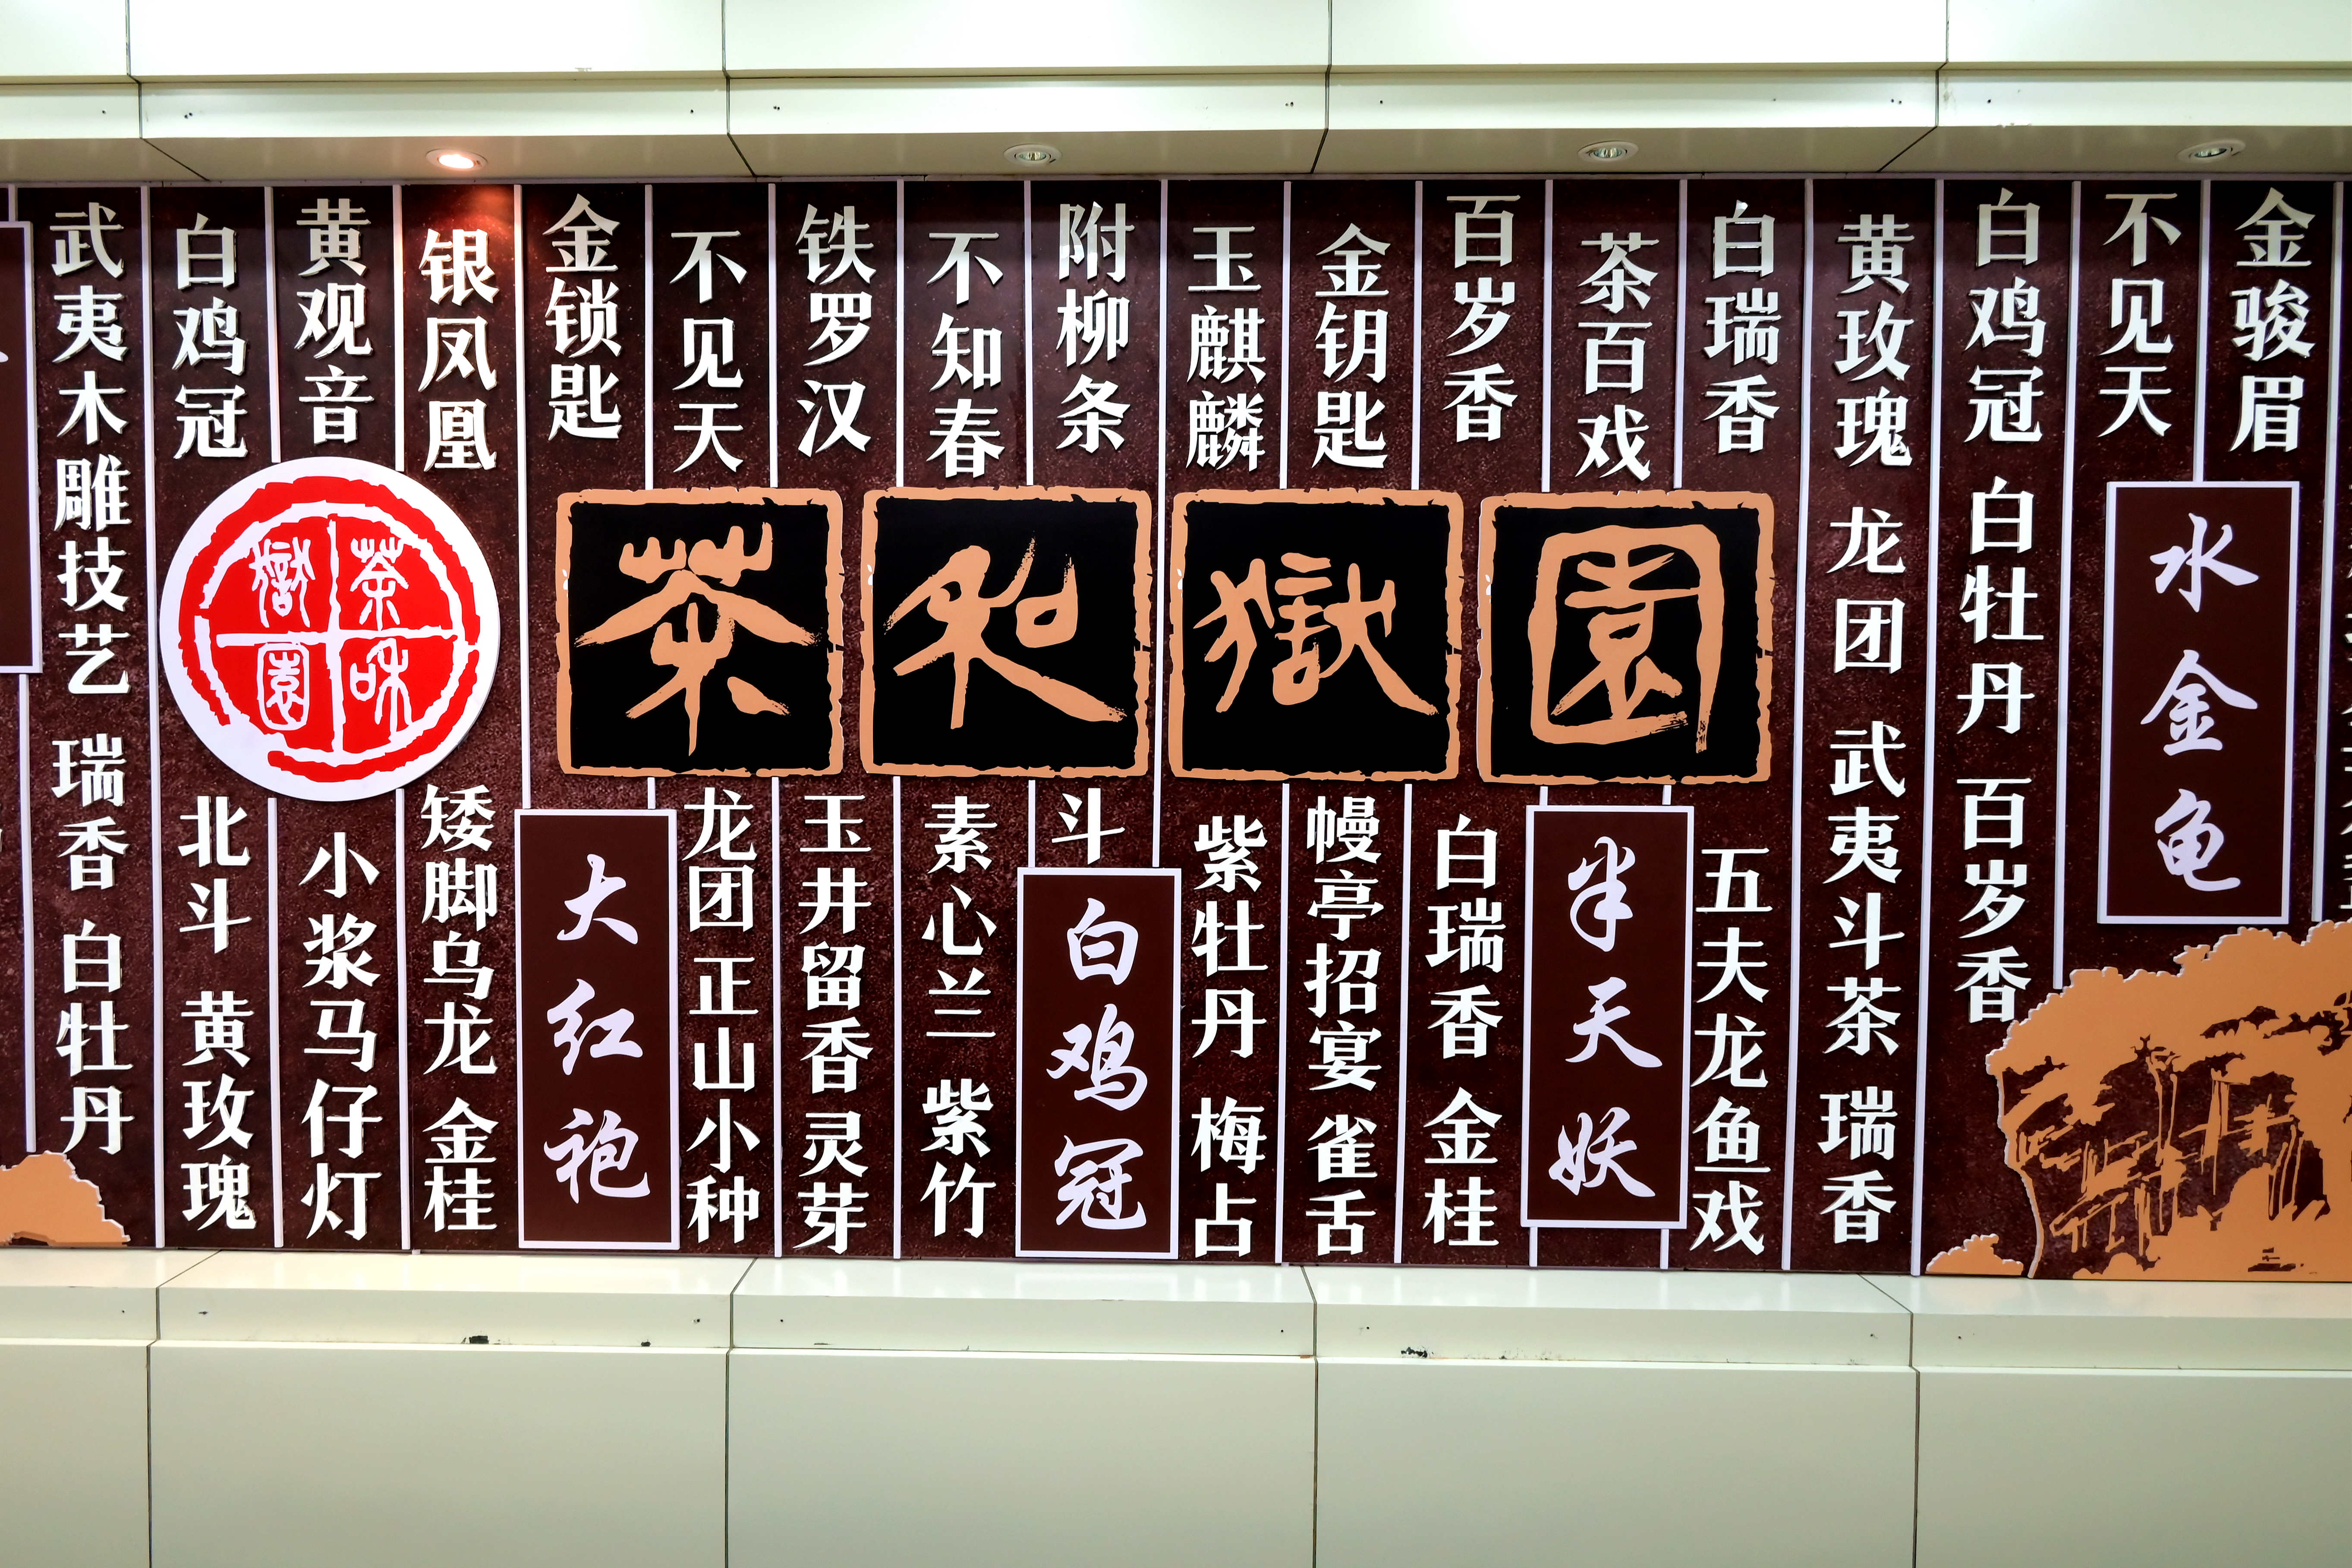 武夷木雕技艺 瑞香 白牡丹
白鸡冠
北斗 黄玫瑰
黄观音
小浆马仔灯
银凤凰
矮脚乌龙 金桂
金锁匙
大红袍
不见天
龙团 正山小种
铁罗汉
玉井留香 灵芽
不知春
素心兰 紫竹
附柳条
斗
白鸡冠
玉麒麟
紫牡丹 梅占
金钥匙
幔亭招宴 雀舌
百岁香
白瑞香 金桂
茶百戏
半天妖
白瑞香
五夫龙鱼戏
黄玫瑰 龙团 武夷斗茶 瑞香
白鸡冠 白牡丹 百岁香
不见天
水金龟
金骏眉
茶和嶽園
茶和嶽園